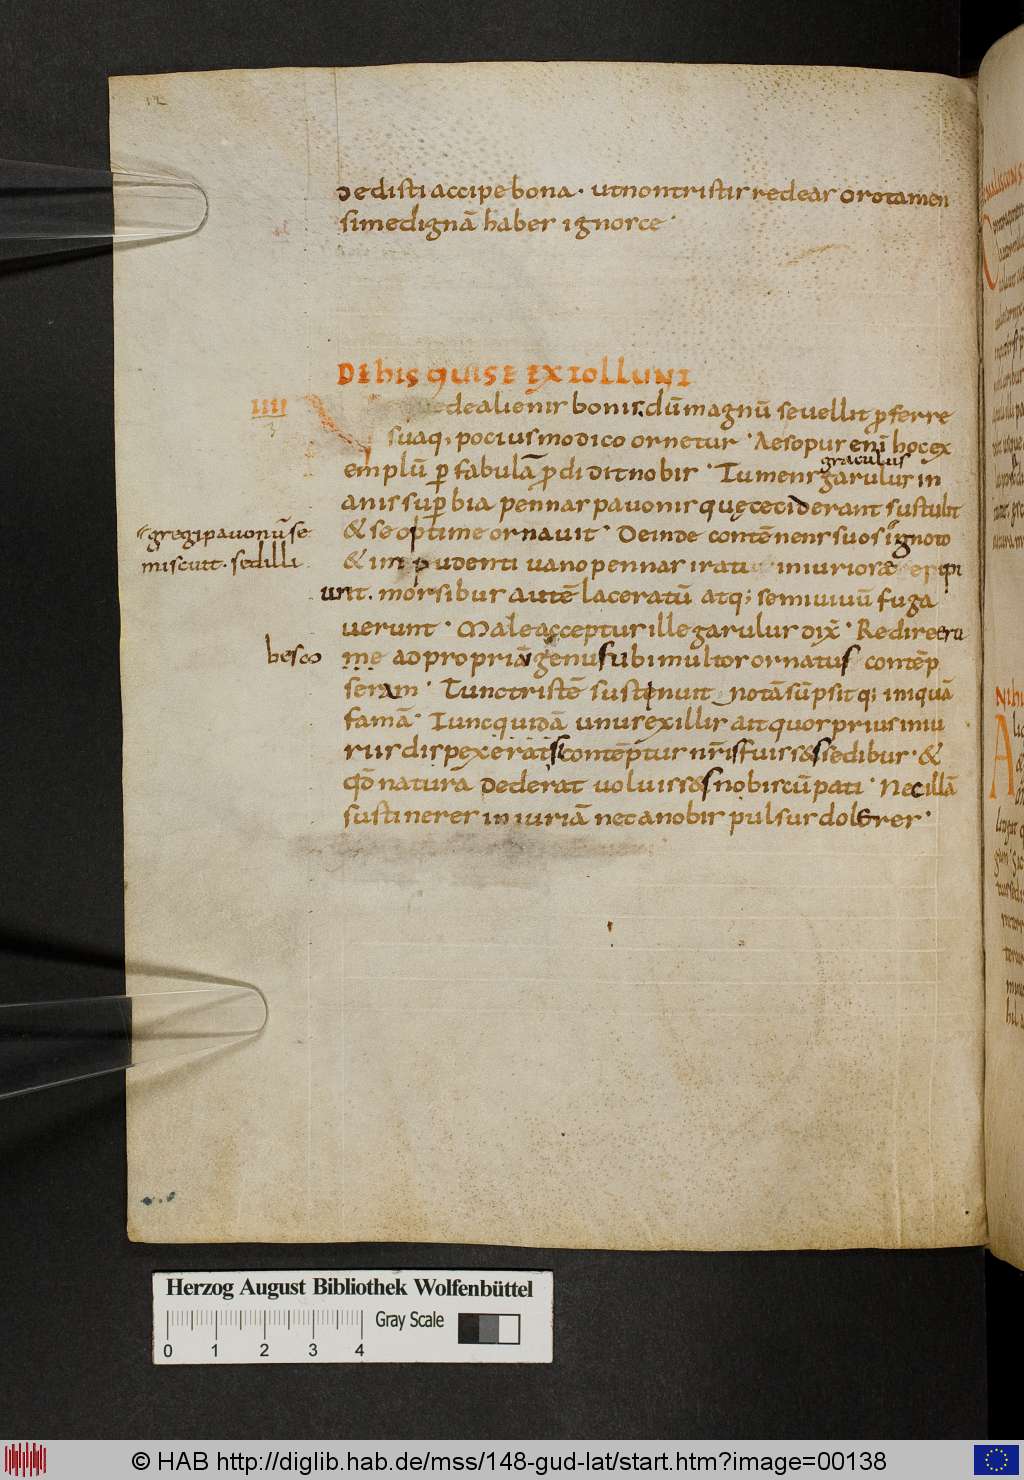 12
dedisti accipe bona · ut non tristis redeas oro tamen
si me dignā habes ignosce ·
DE his QUI SE EXTOLLUNT
IIII
3
de alienis bonis. dū magnū se vellit ꝓferre
suaq; pocius modico ornetur · Aesopus enī hoc ex
emplū ꝑ fabulā ꝓdidit nobis · Tumens garulus in
graculus
anis suꝑbia pennas pavonis quę ceciderant sustulit
& se optime ornavit · Deinde contēnens suos ignoto
gregi pavonū se
miscuit. sed illi
& inpudenti vano pennas irati iniuriose eripi
unt. morsibus autē laceratū atq; semivivū fuga
verunt · Male acceptus ille garulus dix̄ · Redire eru
besco
me ad propriā genus ubi multos ornatus contēp
seram · Tunc tristē sustenuit notā sūpsitq; iniquā
famā · Tunc quidā unus ex illis ait quos prius iniu
riis dispexerat si contēptus nr̄is fuiss& sedibus · &
qđ natura dederat voluiss& nobiscū pati · Nec illā
sustineres iniuriā nec a nobis pulsus doleres ·
Herzog August Bibliothek Wolfenbüttel
Gray Scale
0 1 2 3 4
© HAB http://diglib.hab.de/mss/148-gud-lat/start.htm?image=00138